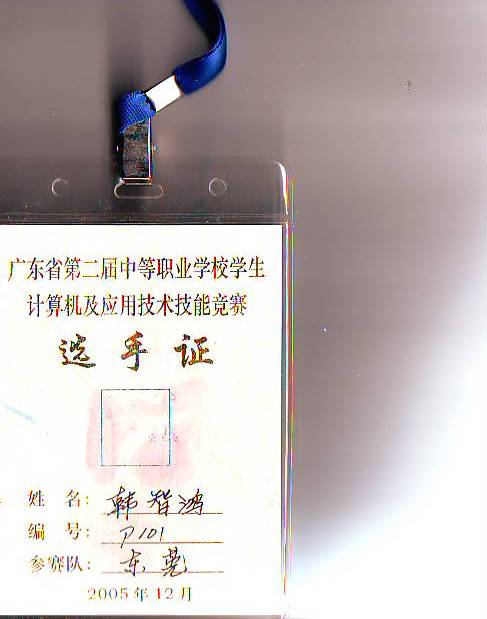 广东省第二届中等职业学校学生
计算机及应用技术技能竞赛
选手证
姓 名: 韩智鸿
编 号: P101
参赛队: 东莞
2005年12月